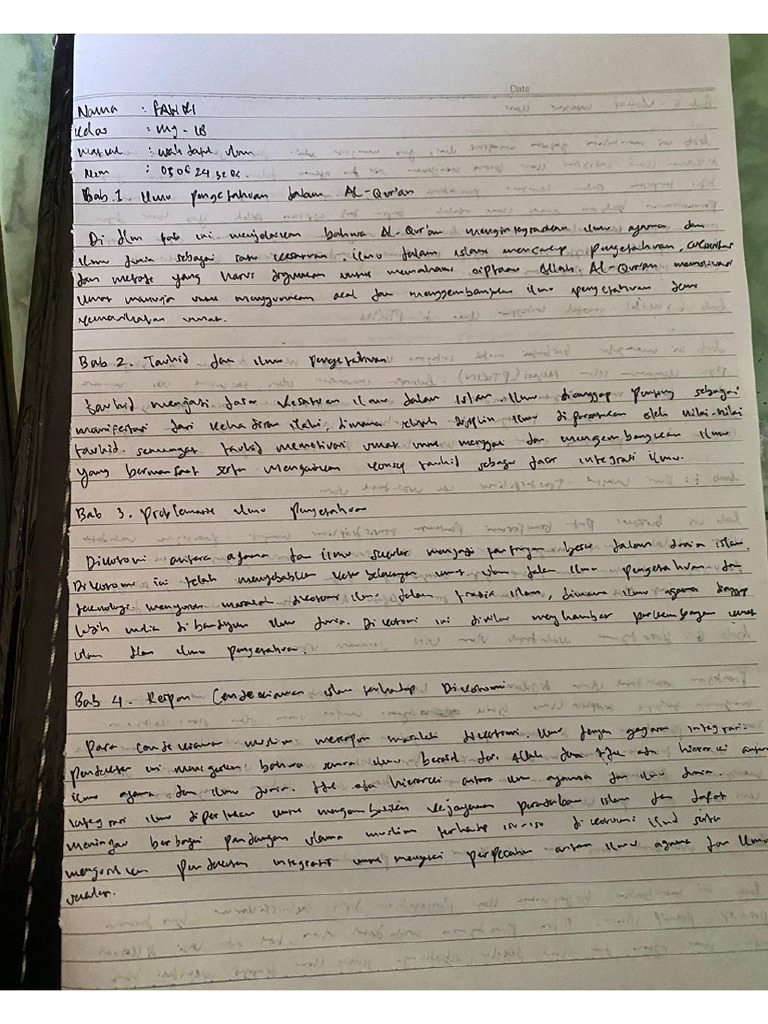 Date
Nama : FAHRI
Kelas : MJ-1B
Matkul : wahdatul ulum
Nim : 0506243
Bab.1 Ilmu pengetahuan dalam AL-Qur'an
Di dlm bab ini menjelaskan bahwa AL-Qur'an mengintegrasikan ilmu agama dan
ilmu dunia sebagai satu kesatuan. ilmu dalam islam mencakup pengetahuan,
dan metode yang harus digunakan untuk memahami ciptaan Allah. AL-Qur'an memotivasi
umat manusia untuk menggunakan akal dan mengembangkan ilmu pengetahuan demi
kemaslahatan umat.
Bab 2. Tauhid dan ilmu pengetahuan
tauhid menjadi dasar kesatuan ilmu dalam islam. Ilmu dianggap penting sebagai
manifestasi dari kehadiran ilahi, dimana seluruh disiplin ilmu dipersatukan oleh nilai-nilai
tauhid. semangat tauhid memotivasi umat untuk menggali dan mengembangkan ilmu
yang bermanfaat serta mengaitkan konsep tauhid sebagai dasar integrasi ilmu.
Bab 3. Problematik ilmu pengetahuan
Dikotomi antara agama dan ilmu sekuler menjadi tantangan besar dalam dunia islam.
Dikotomi ini telah menyebabkan keterbelakangan umat islam dalam ilmu pengetahuan dan
teknologi. masalah dikotomi ilmu dalam tradisi islam, dimana ilmu agama dianggap
lebih mulia dibandingkan ilmu dunia. Dikotomi ini dinilai menghambat perkembangan umat
islam dlam ilmu pengetahuan.
Bab 4. Respon Cendekiawan islam terhadap Dikotomi
Para cendekiawan muslim merespon masalah dikotomi ilmu dengan gagasan integrasi.
pendekatan ini menegaskan bahwa semua ilmu berasal dari Allah dan tdk ada hierarki antara
ilmu agama dan ilmu dunia. tdk ada hierarki antara ilmu agama dan ilmu dunia.
integrasi ilmu diperlukan untuk mengembalikan kejayaan peradaban islam dan dapat
meninjau berbagai pandangan ulama muslim terhadap isu-isu dikotomi ilmu serta
mengusulkan pendekatan integratif untuk mengatasi perpecahan antara ilmu agama dan ilmu
sekuler.